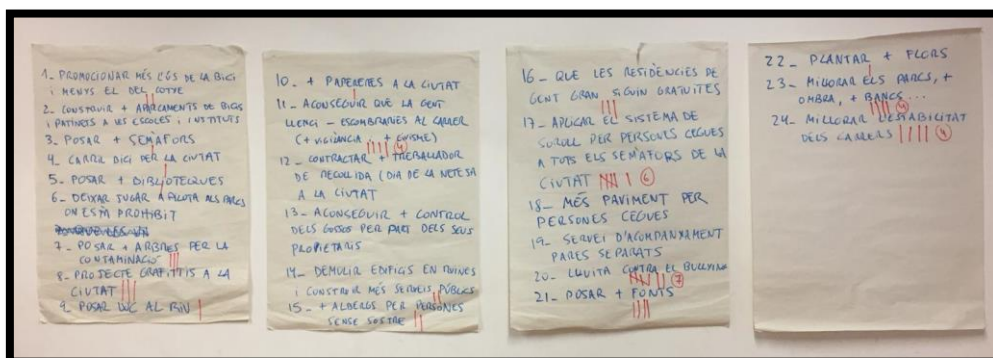 1_ PROMOCIONAR MÉS L'ÚS DE LA BICI
I MENYS EL DEL COTXE
2_ CONSTRUIR + APARCAMENTS DE BICIS
I PATINETS A LES ESCOLES I INSTITUTS
3_ POSAR + SEMÀFORS
4_ CARRIL BICI PER LA CIUTAT
5_ POSAR + BIBLIOTEQUES
6_ DEIXAR JUGAR A PILOTA ALS PARCS
ON ESTÀ PROHIBIT
7_ POSAR + ARBRES PER LA
CONTAMINACIÓ
8_ PROJECTE GRAFITTIS A LA
CIUTAT
9_ POSAR LLUC AL RIU
10_ + PAPERERES A LA CIUTAT
11_ ACONSEGUIR QUE LA GENT
LLENCI - ESCOMBRARIES AL CARRER
(+ VIGILÀNCIA + CIVISME) 4
12_ CONTRACTAR + TREBALLADOR
DE RECOLLIDA (DIA DE LA NETEJA
A LA CIUTAT
13_ ACONSEGUIR + CONTROL
DELS GOSSOS PER PART DELS SEUS
PROPIETARIS
14_ DEMOLIR EDIFICIS EN RUINES
I CONSTRUIR MÉS SERVEIS PÚBLICS
15_ + ALBERGS PER PERSONES
SENSE SOSTRE
16_ QUE LES RESIDÈNCIES DE
GENT GRAN SIGUIN GRATUITES
17_ APLICAR EL SISTEMA DE
SOROLL PER PERSONES CEGUES
A TOTS ELS SEMÀFORS DE LA
CIUTAT 6
18_ MÉS PAVIMENT PER
PERSONES CEGUES
19_ SERVEI D'ACOMPANYAMENT
PARES SEPARATS
20_ LLUITA CONTRA EL BULLYING
7
21_ POSAR + FONTS
22_ PLANTAR + FLORS
23_ MILLORAR ELS PARCS, +
OMBRA, + BANCS... 4
24_ MILLORAR L'ESTABILITAT
DELS CARRERS 4